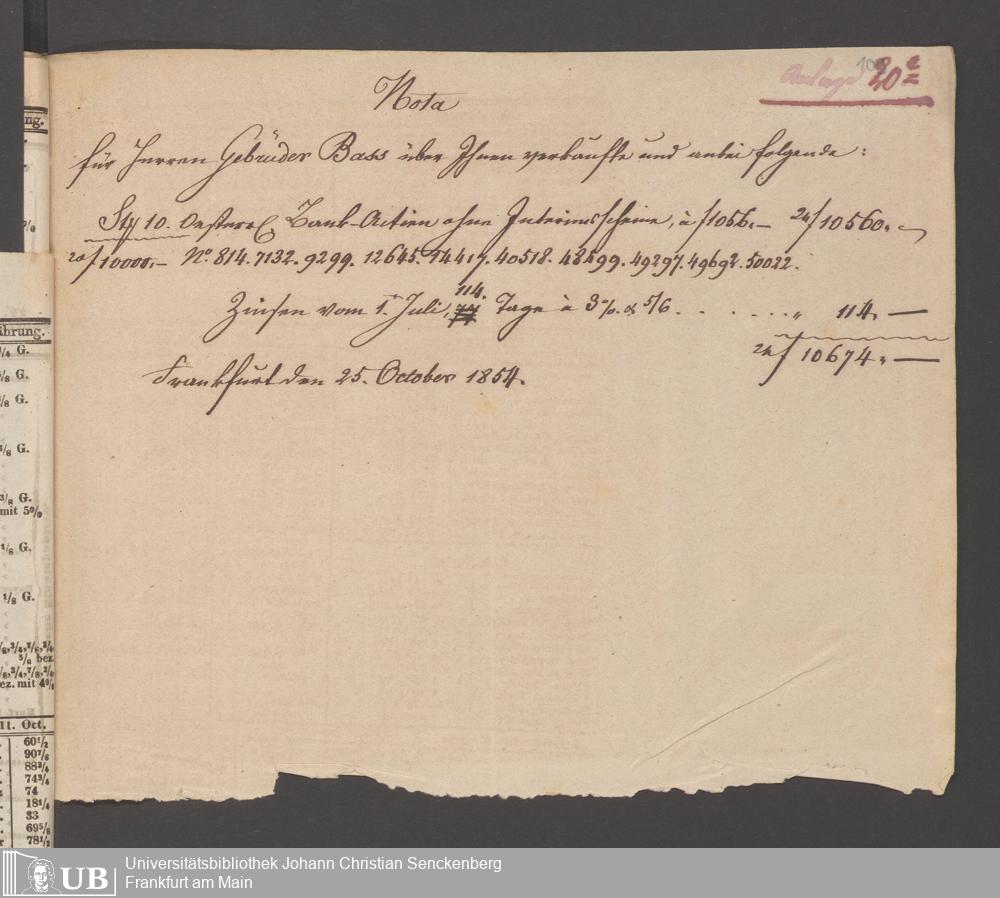 100
Anlage 20e
Nota
für Herren Gebrüder Bass über Ihnen verkaufte und anbei folgende:
St/ 10. Oesterr. Bank-Actien ohne Interimsscheine, à f 1056.– 24/f 10560.–
20/f 10000.– No. 814. 7132. 9299. 12645. 14417. 40518. 48299. 49297. 49692. 50022.
114.
Zinsen vom 1. Juli, Tage à 3 % & 5/6 . . . . . . . „ 114.–
24/f 10674.–
Frankfurt den 25. October 1854.
ng.
%
ährung.
1/4 G.
5/8 G.
5/8 G.
3/8 G.
3/8 G.
mit 5%
1/8 G.
1/8 G.
5/8 bez
ez. mit 4%
11. Oct.
60 1/2
90 7/8
88 3/4
74 3/4
74
18 1/4
33
69 5/8
78 1/2
UB
Universitätsbibliothek Johann Christian Senckenberg
Frankfurt am Main